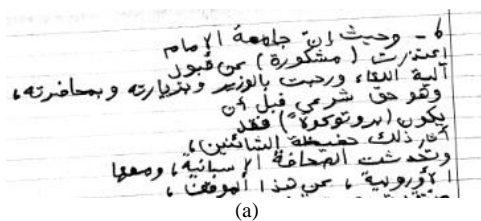 ٦- وحيث إن جامعة الإمام
اعتذرت (مشكورة) عن قبول
آلية اللقاء ورحبت بالوزير وبزيارته وبمحاضرته،
وهو حق شرعي قبل أن
يكون (بروتوكولا) فقد
أثار ذلك حفيظة الشائنين،
وتحدثت الصحافة الإسبانية، ومعها
الأوروبية، عن هذا الموقف،
(a)